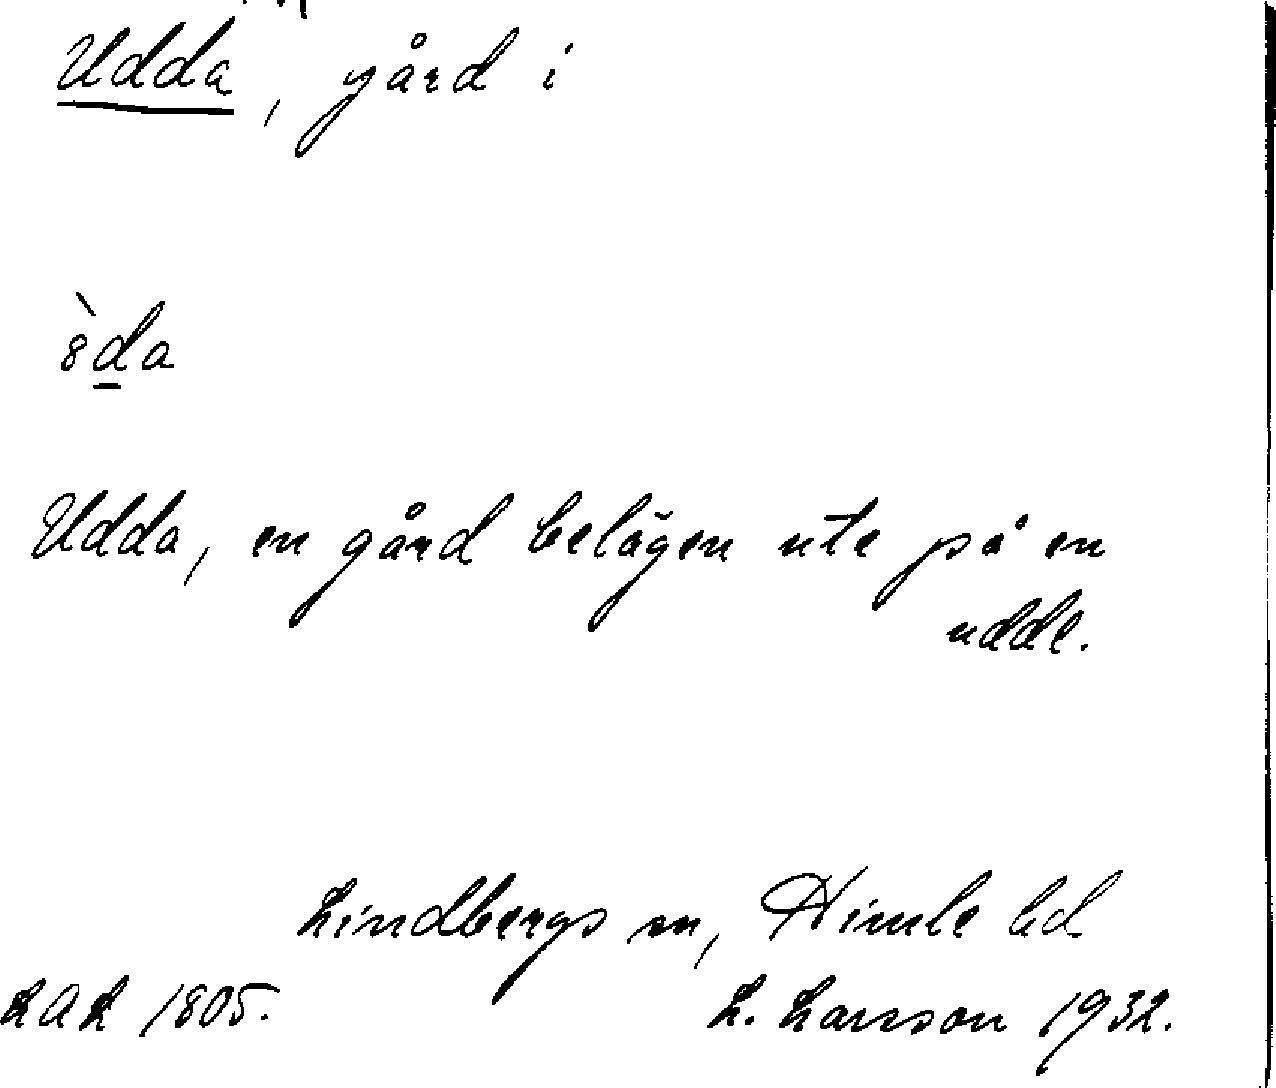 Udda, gård i
8̀d̲a
Udda, en gård belägen ute på en
udde.
Lindbergs sn, Himle hd
LAL 1805.
L. Larsson 1932.